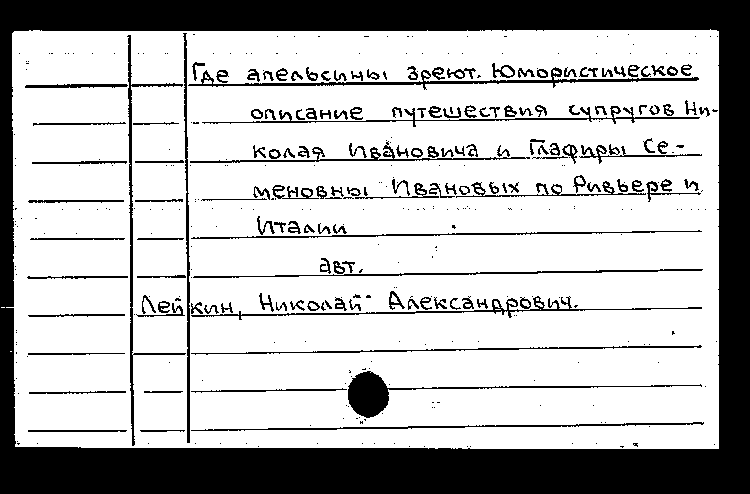 Где апельсины зреют. Юмористическое
описание путешествия супругов Ни-
колая Ивановича и Глафиры Се-
меновны Ивановых по Ривьере и
Италии
авт.
Лейкин, Николай Александрович.